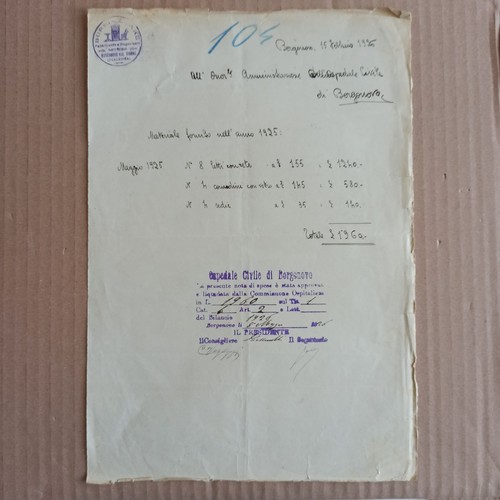 104
Borgonovo, 15 Febbraio 1926
All' Onor. Amministrazione dell'Ospedale Civile
di Borgonovo
Materiale fornito nell'anno 1925:
Maggio 1925 N° 8 letti a £ 155 = £ 1240.-
N° 4 comodini a £ 145 = £ 580.-
N° 4 sedie a £ 35 = £ 140.-
Totale £ 1960.-
Ospedale Civile di Borgonovo
La presente nota di spese è stata approvata
e liquidata dalla Commissione Ospitaliera
in L. 1960 sul Tit. 1
Cat. Art. 2 e Lett.
del Bilancio 1926
Borgonovo li
IL PRESIDENTE
Il Consigliere Il Segretario